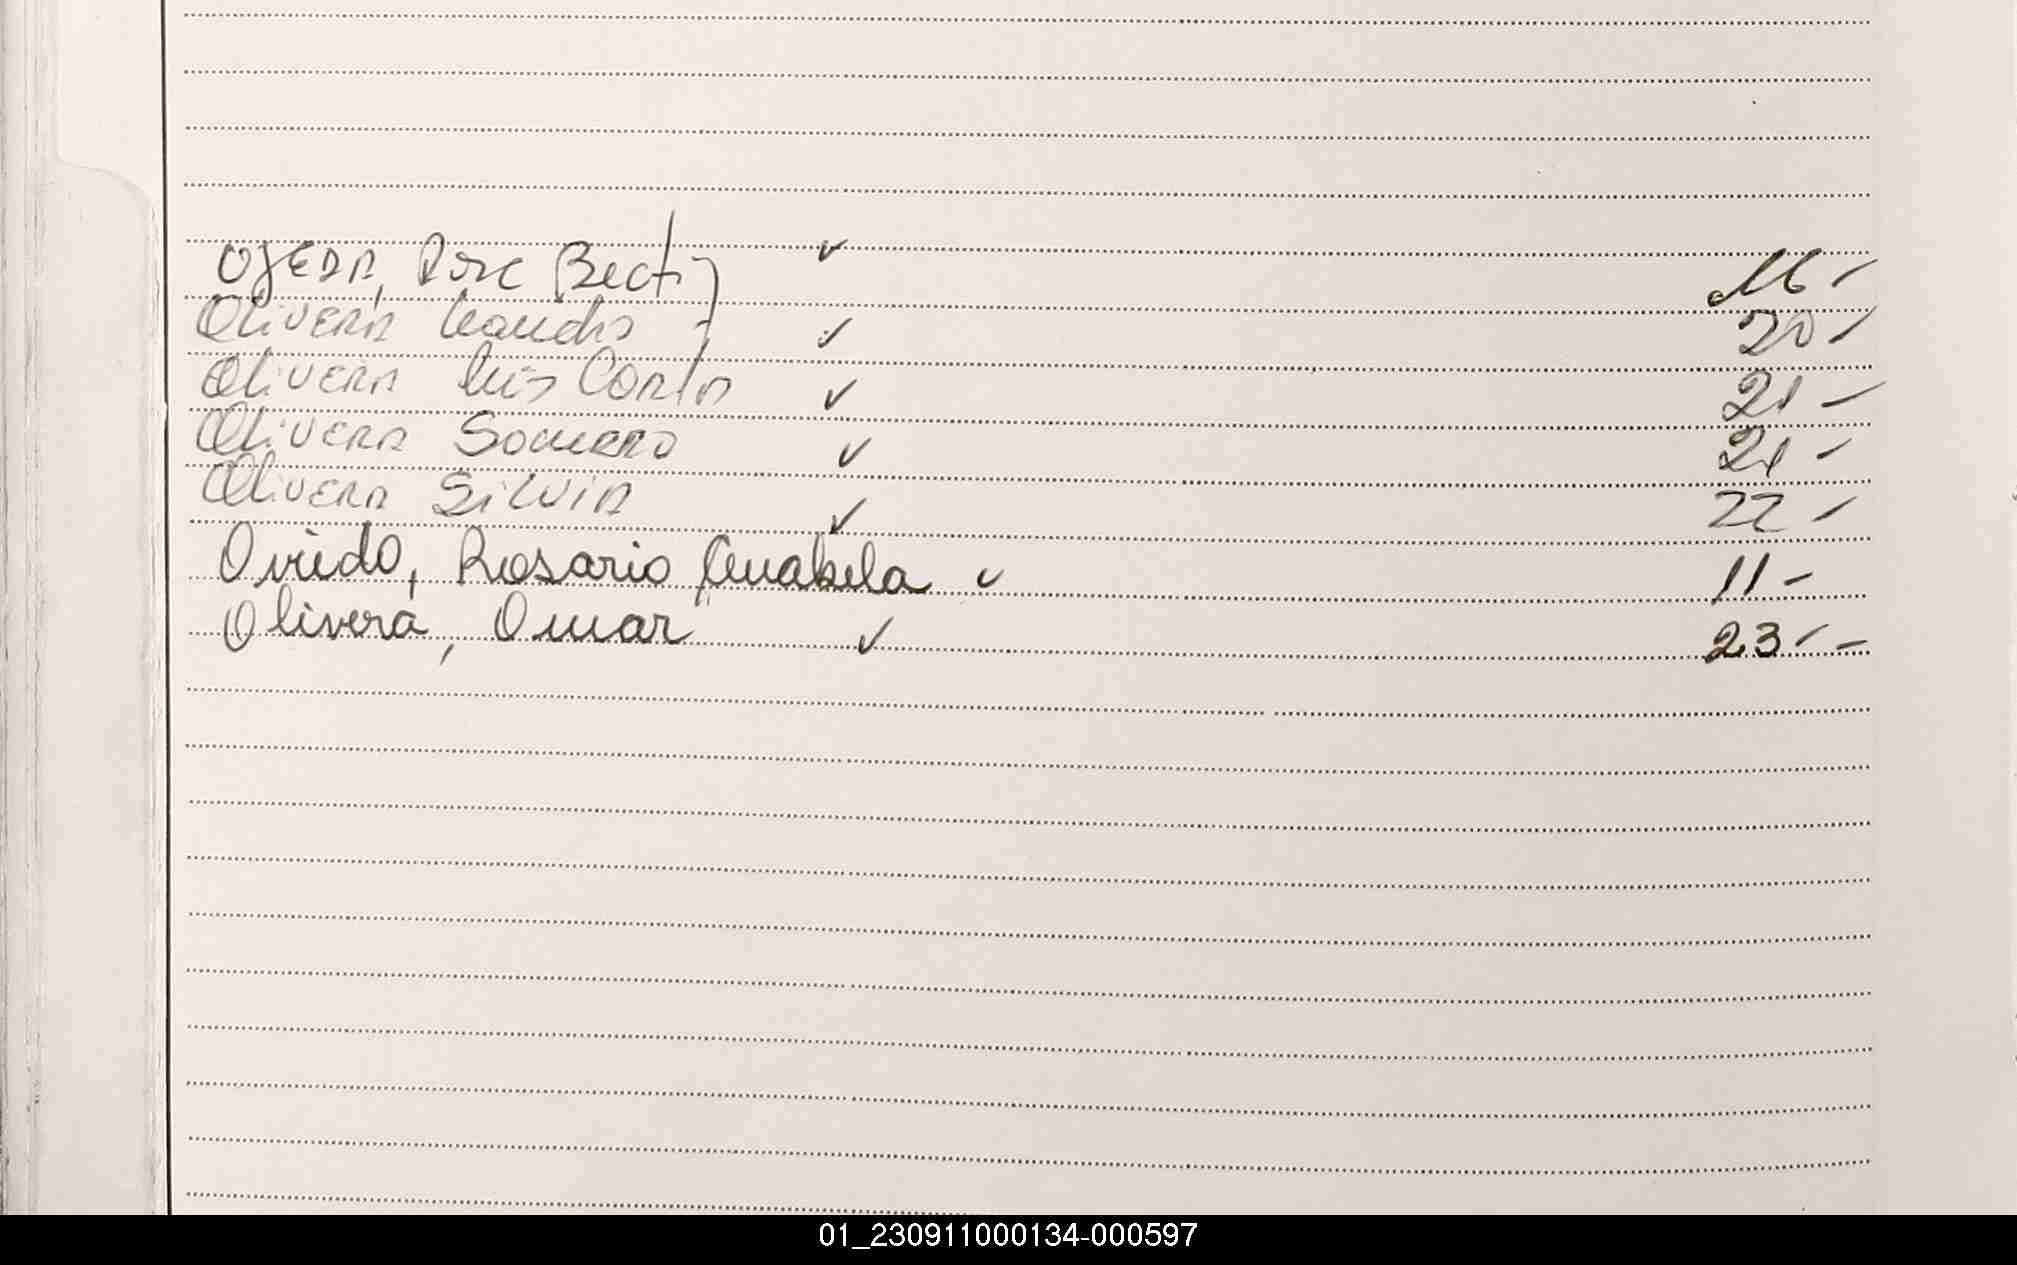 OJEDA, Rosc Beatriz ✓ 16 -
Olivera Claudio ✓ 20 -
Olivera Luis Carlo ✓ 21 -
Olivera Socorro ✓ 21 -
Olivera Silvia ✓ 22 -
Oviedo, Rosario Anabela ✓ 11 -
Olivera, Omar ✓ 23 - -
01_230911000134-000597